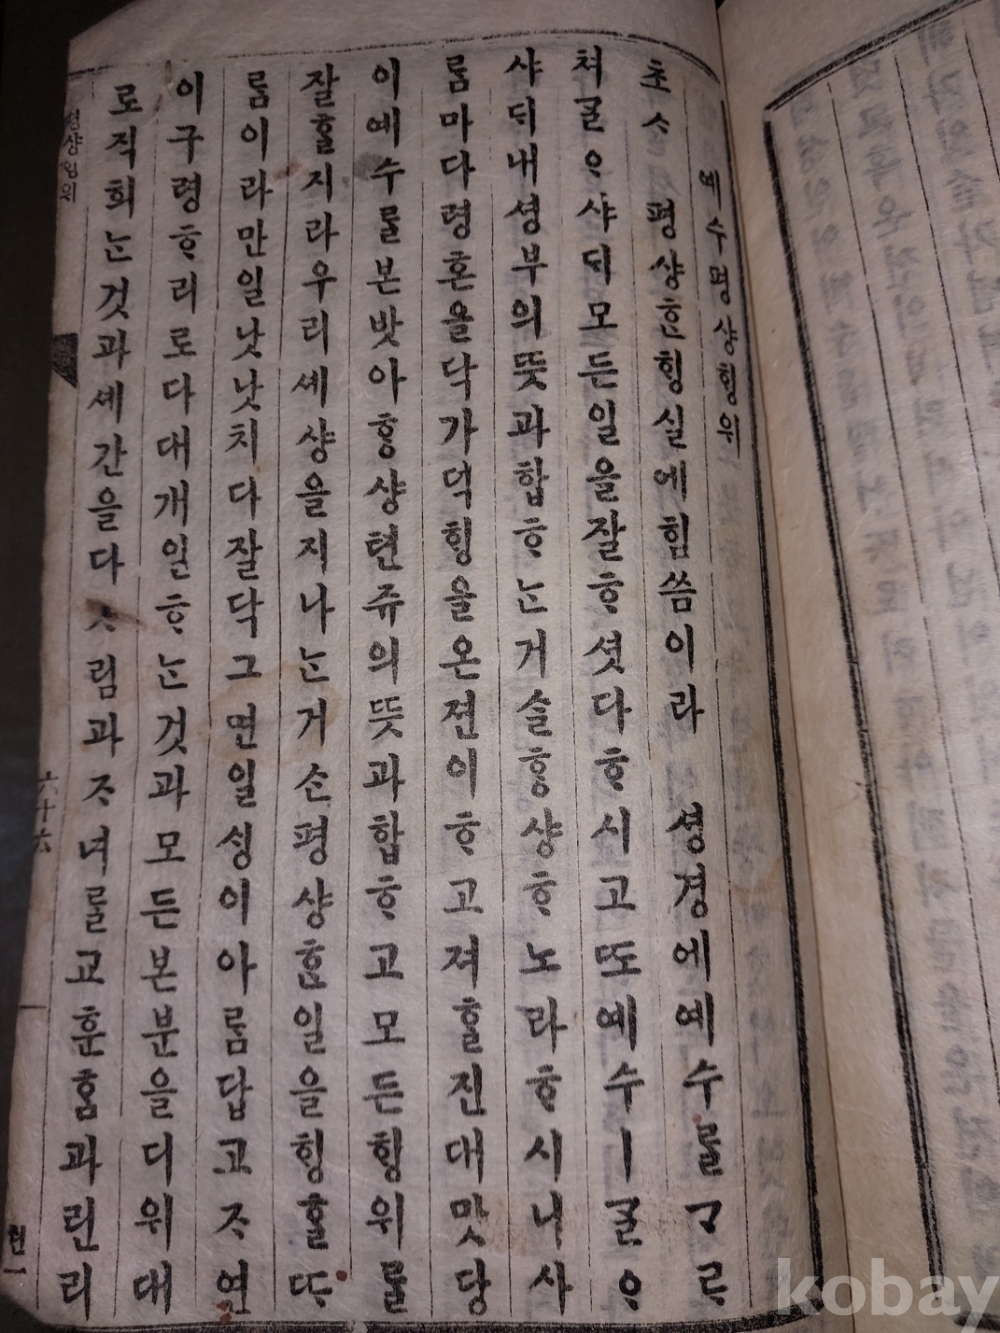 예수평샹ᄒᆡᆼ위
초ᄉᆞ 평샹ᄒᆞᆫᄒᆡᆼ실에힘씀이라 셩경에예수ᄅᆞᆯᄀᆞᄅᆞ
쳐ᄀᆞᆯᄋᆞ샤ᄃᆡ모든일을잘ᄒᆞ셧다ᄒᆞ시고또예수ㅣᄀᆞᆯᄋᆞ
샤ᄃᆡ내셩부의뜻과합ᄒᆞᄂᆞᆫ거슬ᄒᆞᆼ샹ᄒᆞ노라ᄒᆞ시니사
ᄅᆞᆷ마다령혼을닥가덕ᄒᆡᆼ을온젼이ᄒᆞ고져ᄒᆞᆯ진대맛당
이예수ᄅᆞᆯ본밧아ᄒᆞᆼ샹텬쥬의뜻과합ᄒᆞ고모든ᄒᆡᆼ위ᄅᆞᆯ
잘ᄒᆞᆯ지라우리셰샹을지나ᄂᆞᆫ거ᄉᆞᆫ평샹ᄒᆞᆫ일을ᄒᆡᆼᄒᆞᆯᄯᆞ
ᄅᆞᆷ이라만일낫낫치다잘닥그면일ᄉᆡᆼ이아ᄅᆞᆷ답고ᄌᆞ연
이구령ᄒᆞ리로다대개일ᄒᆞᄂᆞᆫ것과모든본분을디위대
로직희ᄂᆞᆫ것과셰간을다ᄉᆞ림과ᄌᆞ녀ᄅᆞᆯ교훈ᄒᆞᆷ과린리
평샹ᄒᆡᆼ위
六十六
kobay